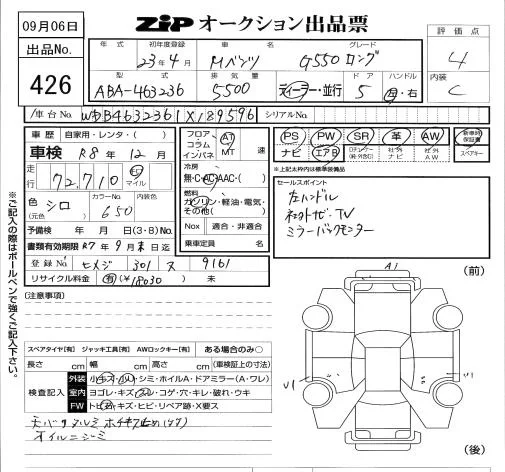 09月06日
ZIP オークション出品票
出品No.
426
年式 初年度登録 車名 グレード ドア ハンドル
23年4月 Mベンツ G550ロング
型式 排気量
ABA-463236 5500 ディーラー・並行 5 左・右
評価点
4
内装
C
車台No. WDB4632361X189596 シリアルNo.
車歴 自家用・レンタ( )
車検 R8年12月
走行 72,710 km マイル
色 シロ (元色) カラーNo. 650 内装色
予備検 年 月 日(3・8)No.
書類有効期限 R7年9月末日迄
登録No. ヒメジ 301 ヌ 9161
リサイクル料金 有(¥18030) 未
フロア コラム インパネ AT MT 速
冷房 無・C・AC・AAC・( )
燃料 ガソリン・軽油・電気・その他( )
Nox 適合・非適合
乗車定員 名
PS PW SR 革 AW 新車時保証書
ナビ エアB 社外ナビ 社外AW スペアキー
※上記太枠内は標準装備品
セールスポイント
左ハンドル
ミラーバックモニター
(注意事項)
スペアタイヤ[有] ジャッキ工具[有] AWロックキー[有] ある場合のみ○
長さ cm 幅 cm 高さ cm (車検証上の寸法)
検査記入
外装 小キズ・小凹・シミ・ホイルA・ドアミラー(A・ワレ)
室内 ヨゴレ・キズ・スレ・コゲ・穴・キレ・破れ・ウキ
FW トビ石・キズ・ヒビ・リペア跡・X要ス
オイルニジミ
※ご記入の際はボールペンで強くご記入下さい。
A1
(前)
V1
V1
(後)